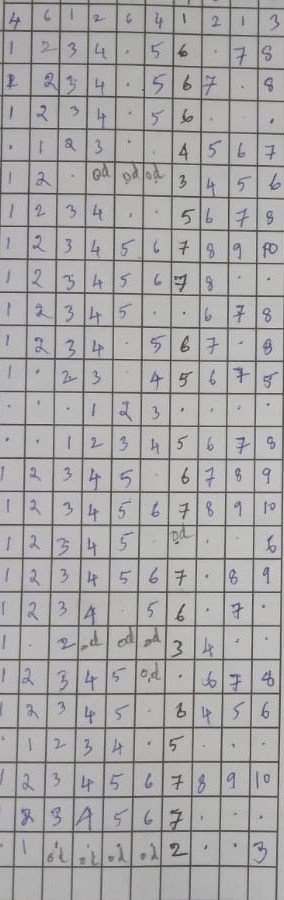 4 6 1 2 6 4 1 2 1 3
1 2 3 4 . 5 6 . 7 8
1 2 3 4 . 5 6 7 . 8
1 2 3 4 . 5 6 . . .
. 1 2 3 . . 4 5 6 7
1 2 . od od od 3 4 5 6
1 2 3 4 . . 5 6 7 8
1 2 3 4 5 6 7 8 9 10
1 2 3 4 5 6 7 8 . .
1 2 3 4 5 . . 6 7 8
1 2 3 4 . 5 6 7 . 8
1 . 2 3 . 4 5 6 7 5
. . . 1 2 3 . . . .
. . 1 2 3 4 5 6 7 8
1 2 3 4 5 . 6 7 8 9
1 2 3 4 5 6 7 8 9 10
1 2 3 4 5 . od . . 6
1 2 3 4 5 6 7 . 8 9
1 2 3 4 . 5 6 . 7 .
1 . 2 od od od 3 4 . .
1 2 3 4 5 od . 6 7 8
1 2 3 4 5 . 3 4 5 6
. 1 2 3 4 . 5 . . .
1 2 3 4 5 6 7 8 9 10
1 2 3 4 5 6 7 . . .
. 1 od od od od 2 . . 3